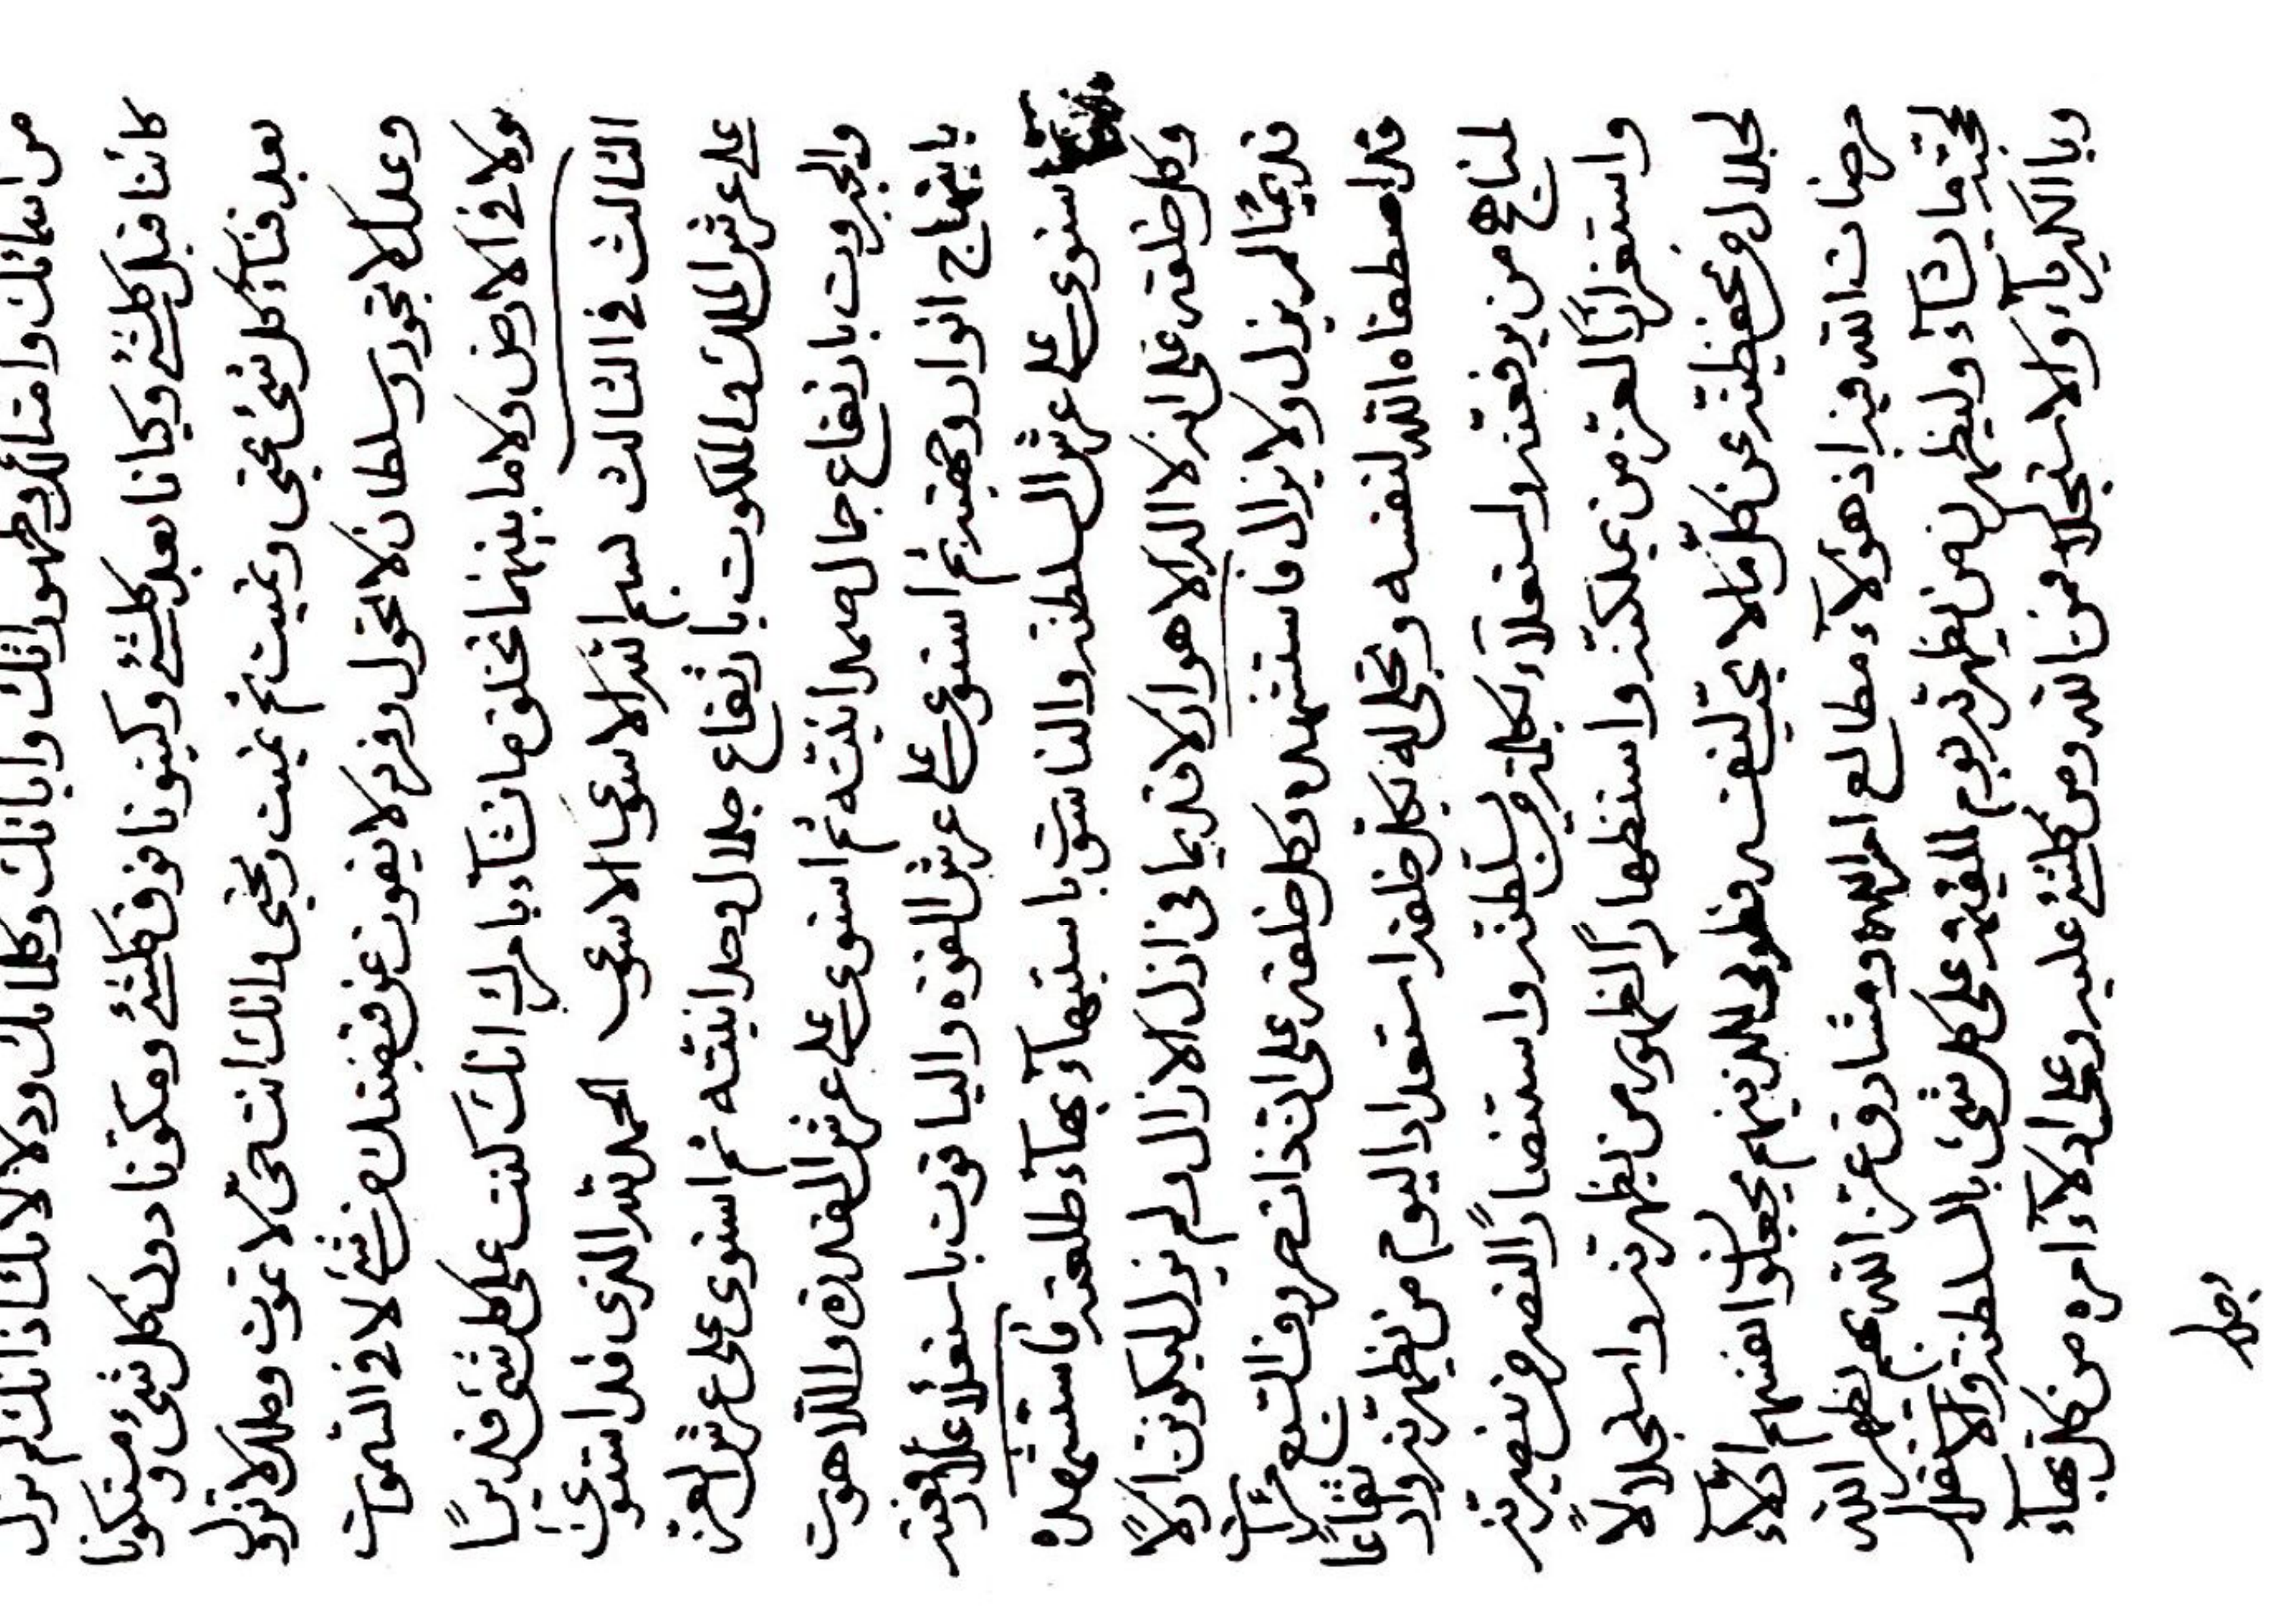 من اسمائك وامثالك وظهوراتك واياتك وكلماتك ودلالاتك اذ انك لم تزل
كائنا قبل كلشئ وكيانا بعد كلشئ وكينونا فوق كلشئ ومكوّنا دون كل شئ ومتكونا
بعد فناء كل شئ تحيى وتميت ثم تميت وتحيى وانك انت حىّ لا تموت وملك لا تزول
وعدل لا تجور وسلطان لا تحول وفرد لا يفوت عن قبضتك من شئ لا فى السموات
ولا فى الارض ولا ما بينهما تخلق ما تشآء بامرك انك كنت على كل شئ قديرًا
الثالث فى الثالث بسم الله الاسوى الاسوى الحمد لله الذى قد استوى
على عرش الملك والملكوت بارتفاع جلال وحدانيته ثم استوى على عرش العز
والجبروت بارتفاع جمال صمدانيته ثم استوى على عرش القدرة واللاهوت
بابتهاج انوار وجهته ثم استوى على عرش القوة والياقوت باستعلاء علاء رفعته
ثم استوى على عرش السلطنة والناسوت باستبهآء بهآء طلعته فاستشهده
وكل خلقه على انه لا اله الا هو ازلا قديما فى ازل الازال ولم يزل ليكونن ازلًا
قديمًا لم يزل ولا يزال فاستشهده وكل خلقه على ان ذات حروف السبع مرآت
قد اصطفاه الله لنفسه وتجلى له بكل خلقه استعدادا ليوم من يظهرنه وارتفاعًا
لمناهج من يرفعنه واستعلآء لكلمة من يسلطنه واستنصارًا لنصر من ينصرنه
واستعزازًا لعز من يملكنه واستظهارًا لظهور من يظهرنه واستجلالًا
لجلال من يحفظنه عن كل ما لا يحب لنفسه وطوبى للذينهم يجعلوا انفسهم ادلآء
مرضات الله فيه اذ هؤلآء مطالع امر الله ومشارق عز الله بهم يظهر الله
لحجته ما يشآء وليظهرنه من يظهرنه يوم القيمة على كل شئ بالسلطنة والاقتدار
وبالكبريآء والاستجلال من الله ومن كلشئ عليه وعلى ادلآء امره من كل بهآء